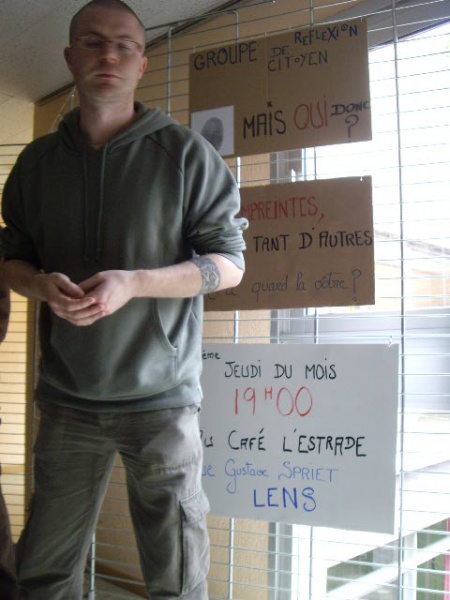 GROUPE DE REFLEXION
CITOYEN
MAIS QUI DONC
?
MPREINTES,
TANT D'AUTRES
quand la vôtre?
ème JEUDI DU MOIS
19H00
AU CAFÉ L'ESTRADE
ue Gustave SPRIET
LENS